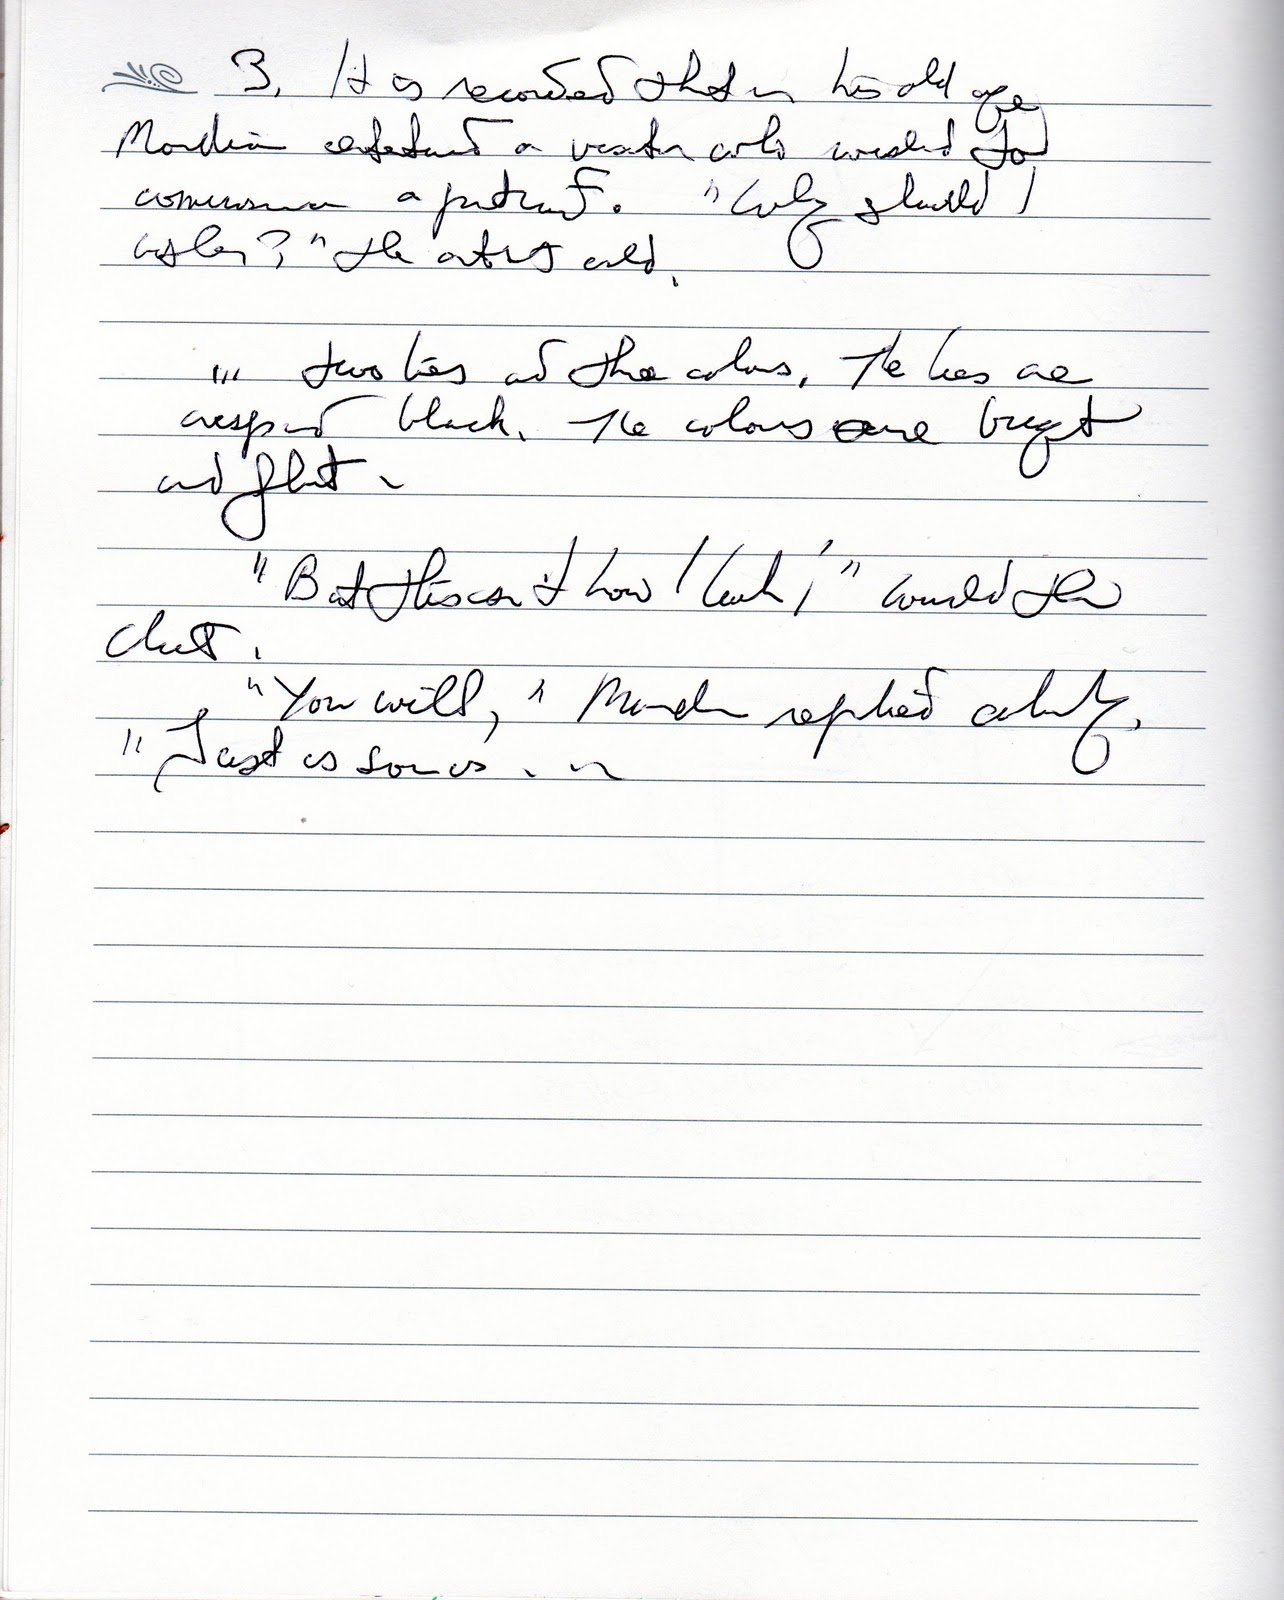 3. It is recorded that in his old age
Mondrian entertained a visitor who wished to
commission a portrait. "Why should I
bother?" the artist said.
... two lines and three colors. The lines are
crisp and black. The colours are bright
and flat.
"But this isn't how I look!" the
client.
"You will," Mondrian replied calmly.
"Just as soon as